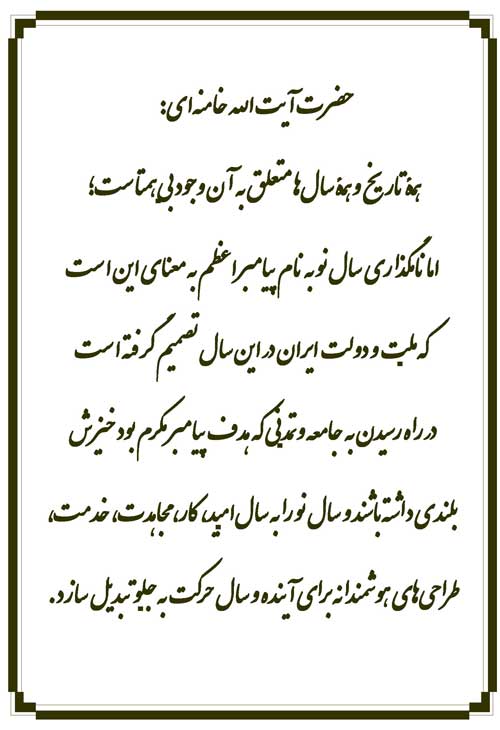 حضرت آیت الله خامنه‌ای:
همهٔ تاریخ و همهٔ سال‌ها متعلق به آن وجود بی‌همتاست؛
اما نامگذاری سال نو به نام پیامبر اعظم به معنای این است
که ملت و دولت ایران در این سال تصمیم گرفته است
در راه رسیدن به جامعه و تمدنی که هدف پیامبر مکرم بود خیزش
بلندی داشته باشند و سال نو را به سال امید، کار، مجاهدت، خدمت،
طراحی‌های هوشمندانه برای آینده و سال حرکت به جلو تبدیل سازد.